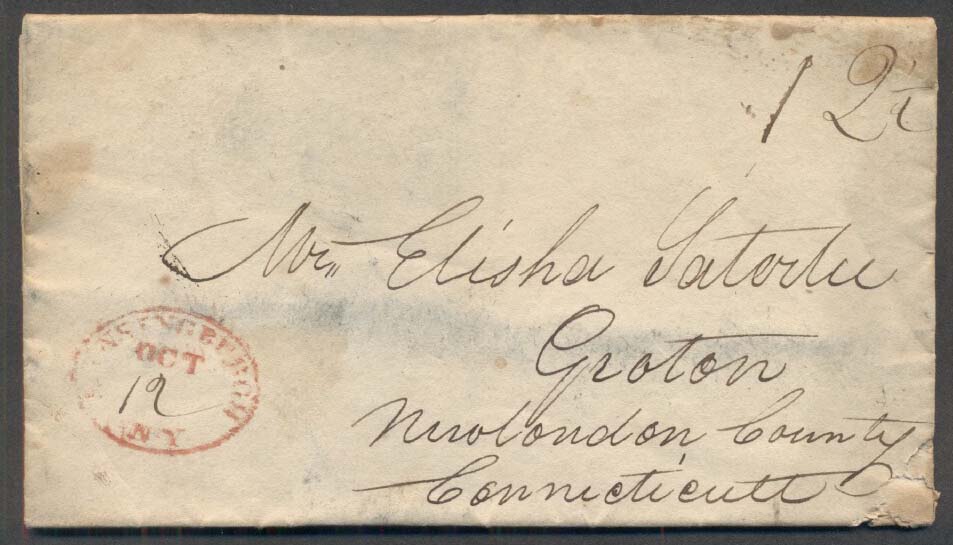 12½
Mr. Elisha Satterlee
Groton
Newlondon County
Connecticutt
LANSINGBURGH
OCT
12
N.Y